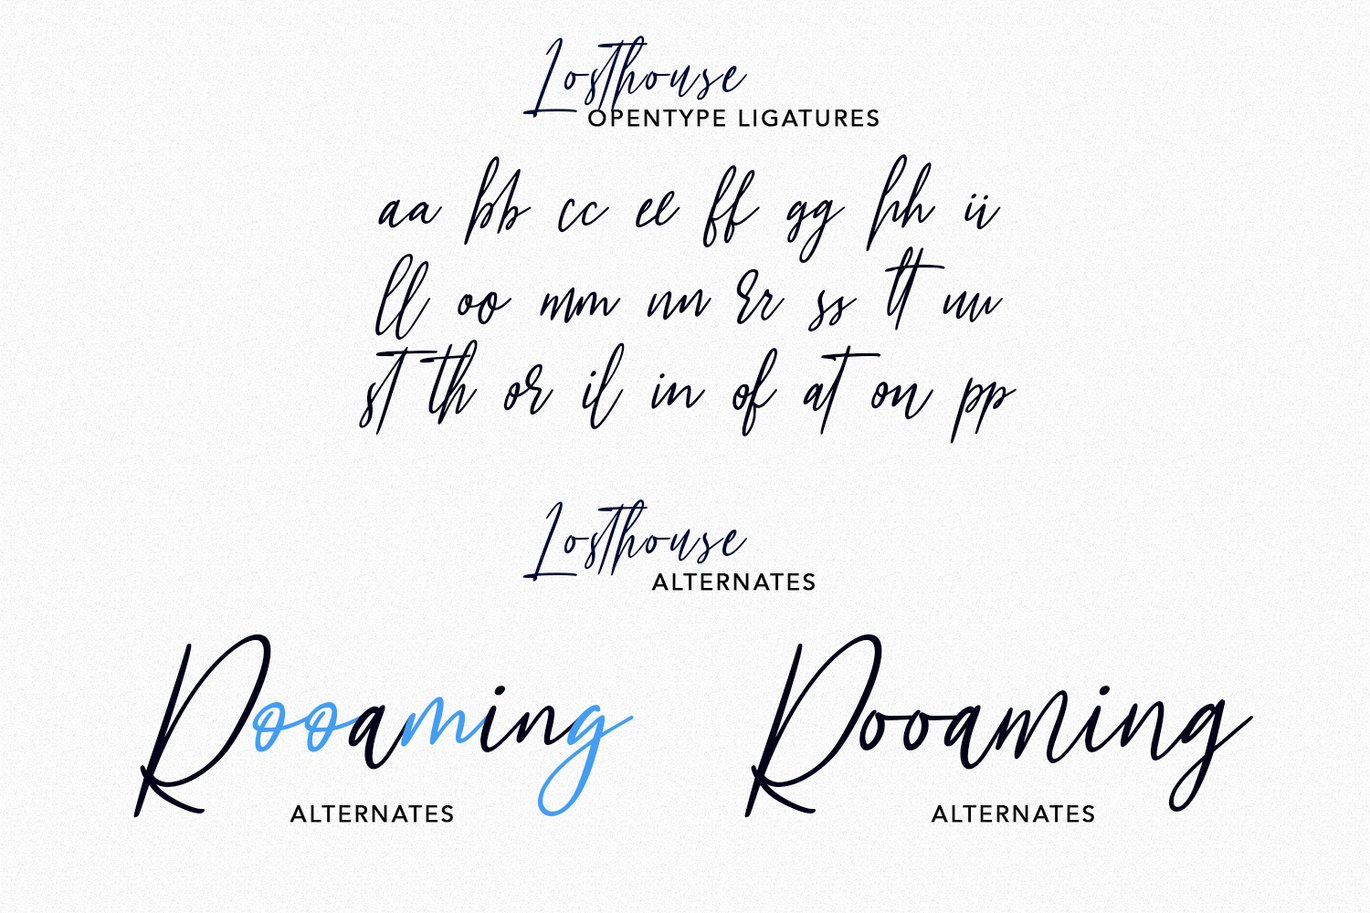 Losthouse
OPENTYPE LIGATURES
aa bb cc ee ff gg hh ii
ll oo mm nn rr ss tt uu
st th or il in of at on pp
Losthouse
ALTERNATES
Rooaming Rooaming
ALTERNATES ALTERNATES